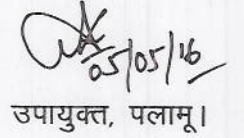 05/05/16
उपायुक्त, पलामू।